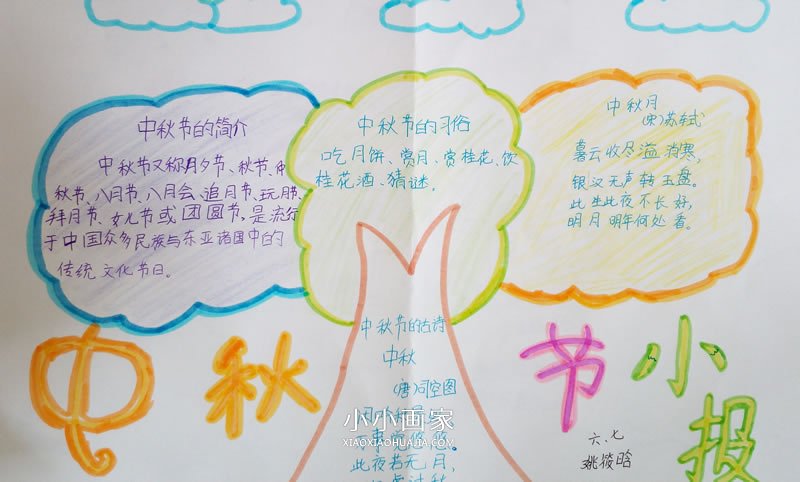 中秋节的简介
中秋节又称月夕节、秋节、仲
秋节、八月节、八月会、追月节、玩月节、
拜月节、女儿节或团圆节,是流行
于中国众多民族与东亚诸国中的
传统文化节日。
中秋节的习俗
吃月饼、赏月、赏桂花、饮
桂花酒、猜谜。
中秋月
(宋)苏轼
暮云收尽溢清寒,
银汉无声转玉盘。
此生此夜不长好,
明月明年何处看。
中秋节的古诗
中秋
(唐)司空图
此夜若无月,
小小画家
XIAOXIAOHUAJIA.COM
中秋节小报
六、七
姚筱晗